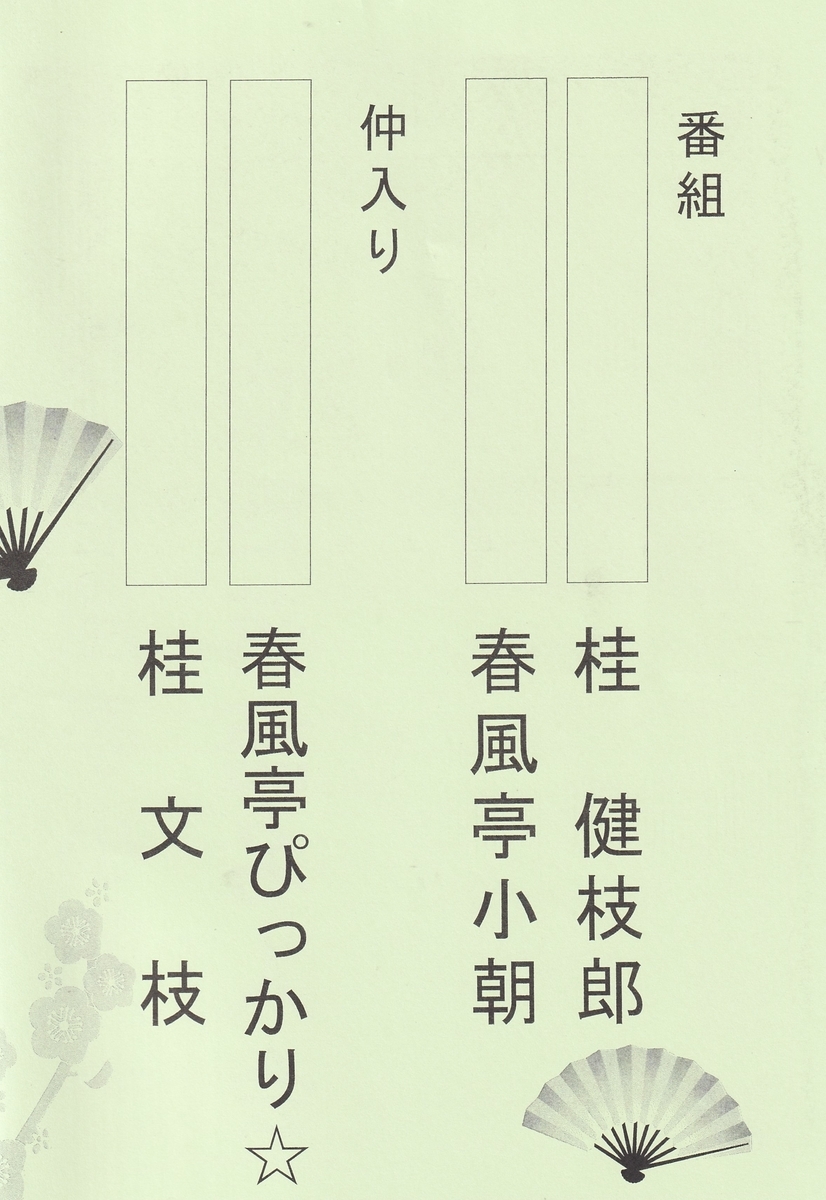 番組
桂 健枝郎
春風亭小朝
仲入り
春風亭ぴっかり☆
桂 文 枝